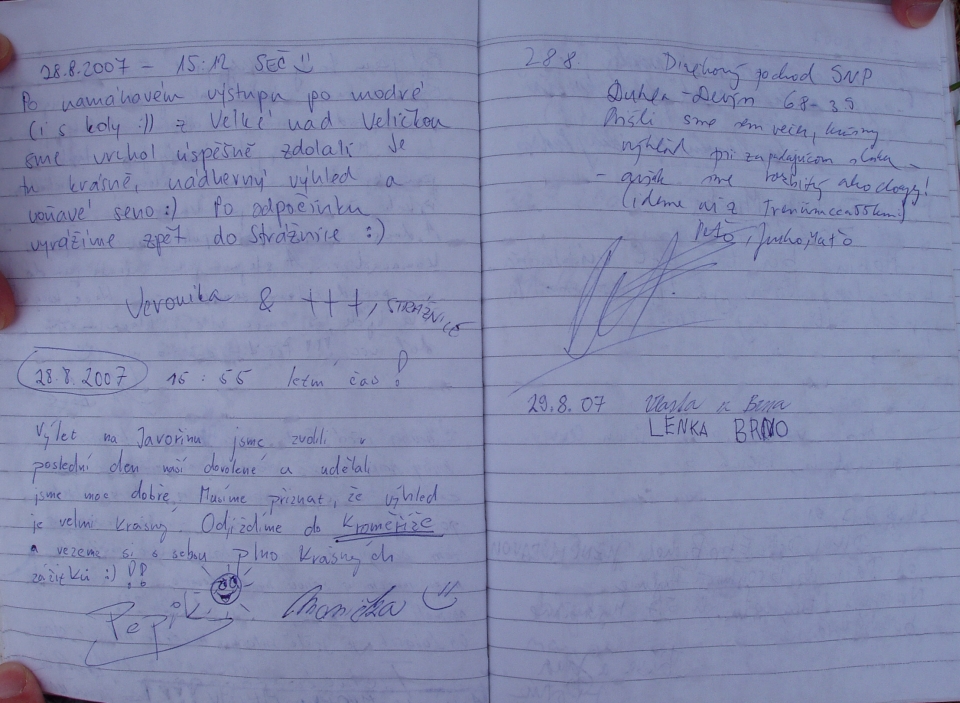 28.8.2007 - 15:12 SEČ
Po namáhavém výstupu po modré
(i s koly :)) z Velké nad Veličkou
sme vrchol úspěšně zdolali Je
tu krásně, nádherný výhled a
voňavé seno :) Po odpočinku
vyrážíme zpět do Strážnice :)
Veronika & +++, STRÁŽNICE
28.8.2007 16:55 letní čas!
Výlet na Javořinu jsme zvolili v
poslední den naší dovolené a udělali
jsme moc dobře. Musíme přiznat, že výhled
je velmi krásný. Odjíždíme do Kroměříže
a vezeme si s sebou plno krásných
zážitků :) !!
Pepik Monička
28 8 pochod SNP
Dukla - Devín 68-39
Prišli sme sem krásny
výhľad pri zapadajúcom slnku -
- sme rozbitý ako dogy!
(ideme už z Trenčína
Maťo
29.8.07 Vlasta z Brna
LENKA BRNO